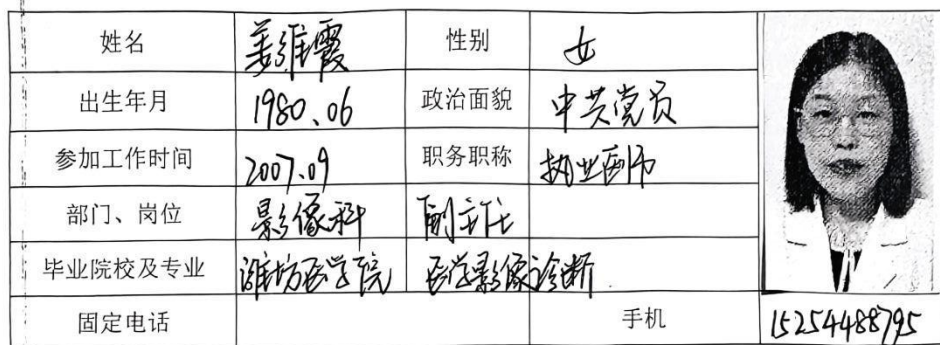 姓名 姜维霞 性别 女
出生年月 1980.06 政治面貌 中共党员
参加工作时间 2007.09 职务职称 执业医师
部门、岗位 影像科 副主任
毕业院校及专业 潍坊医学院 医学影像诊断
固定电话 手机 15254488795